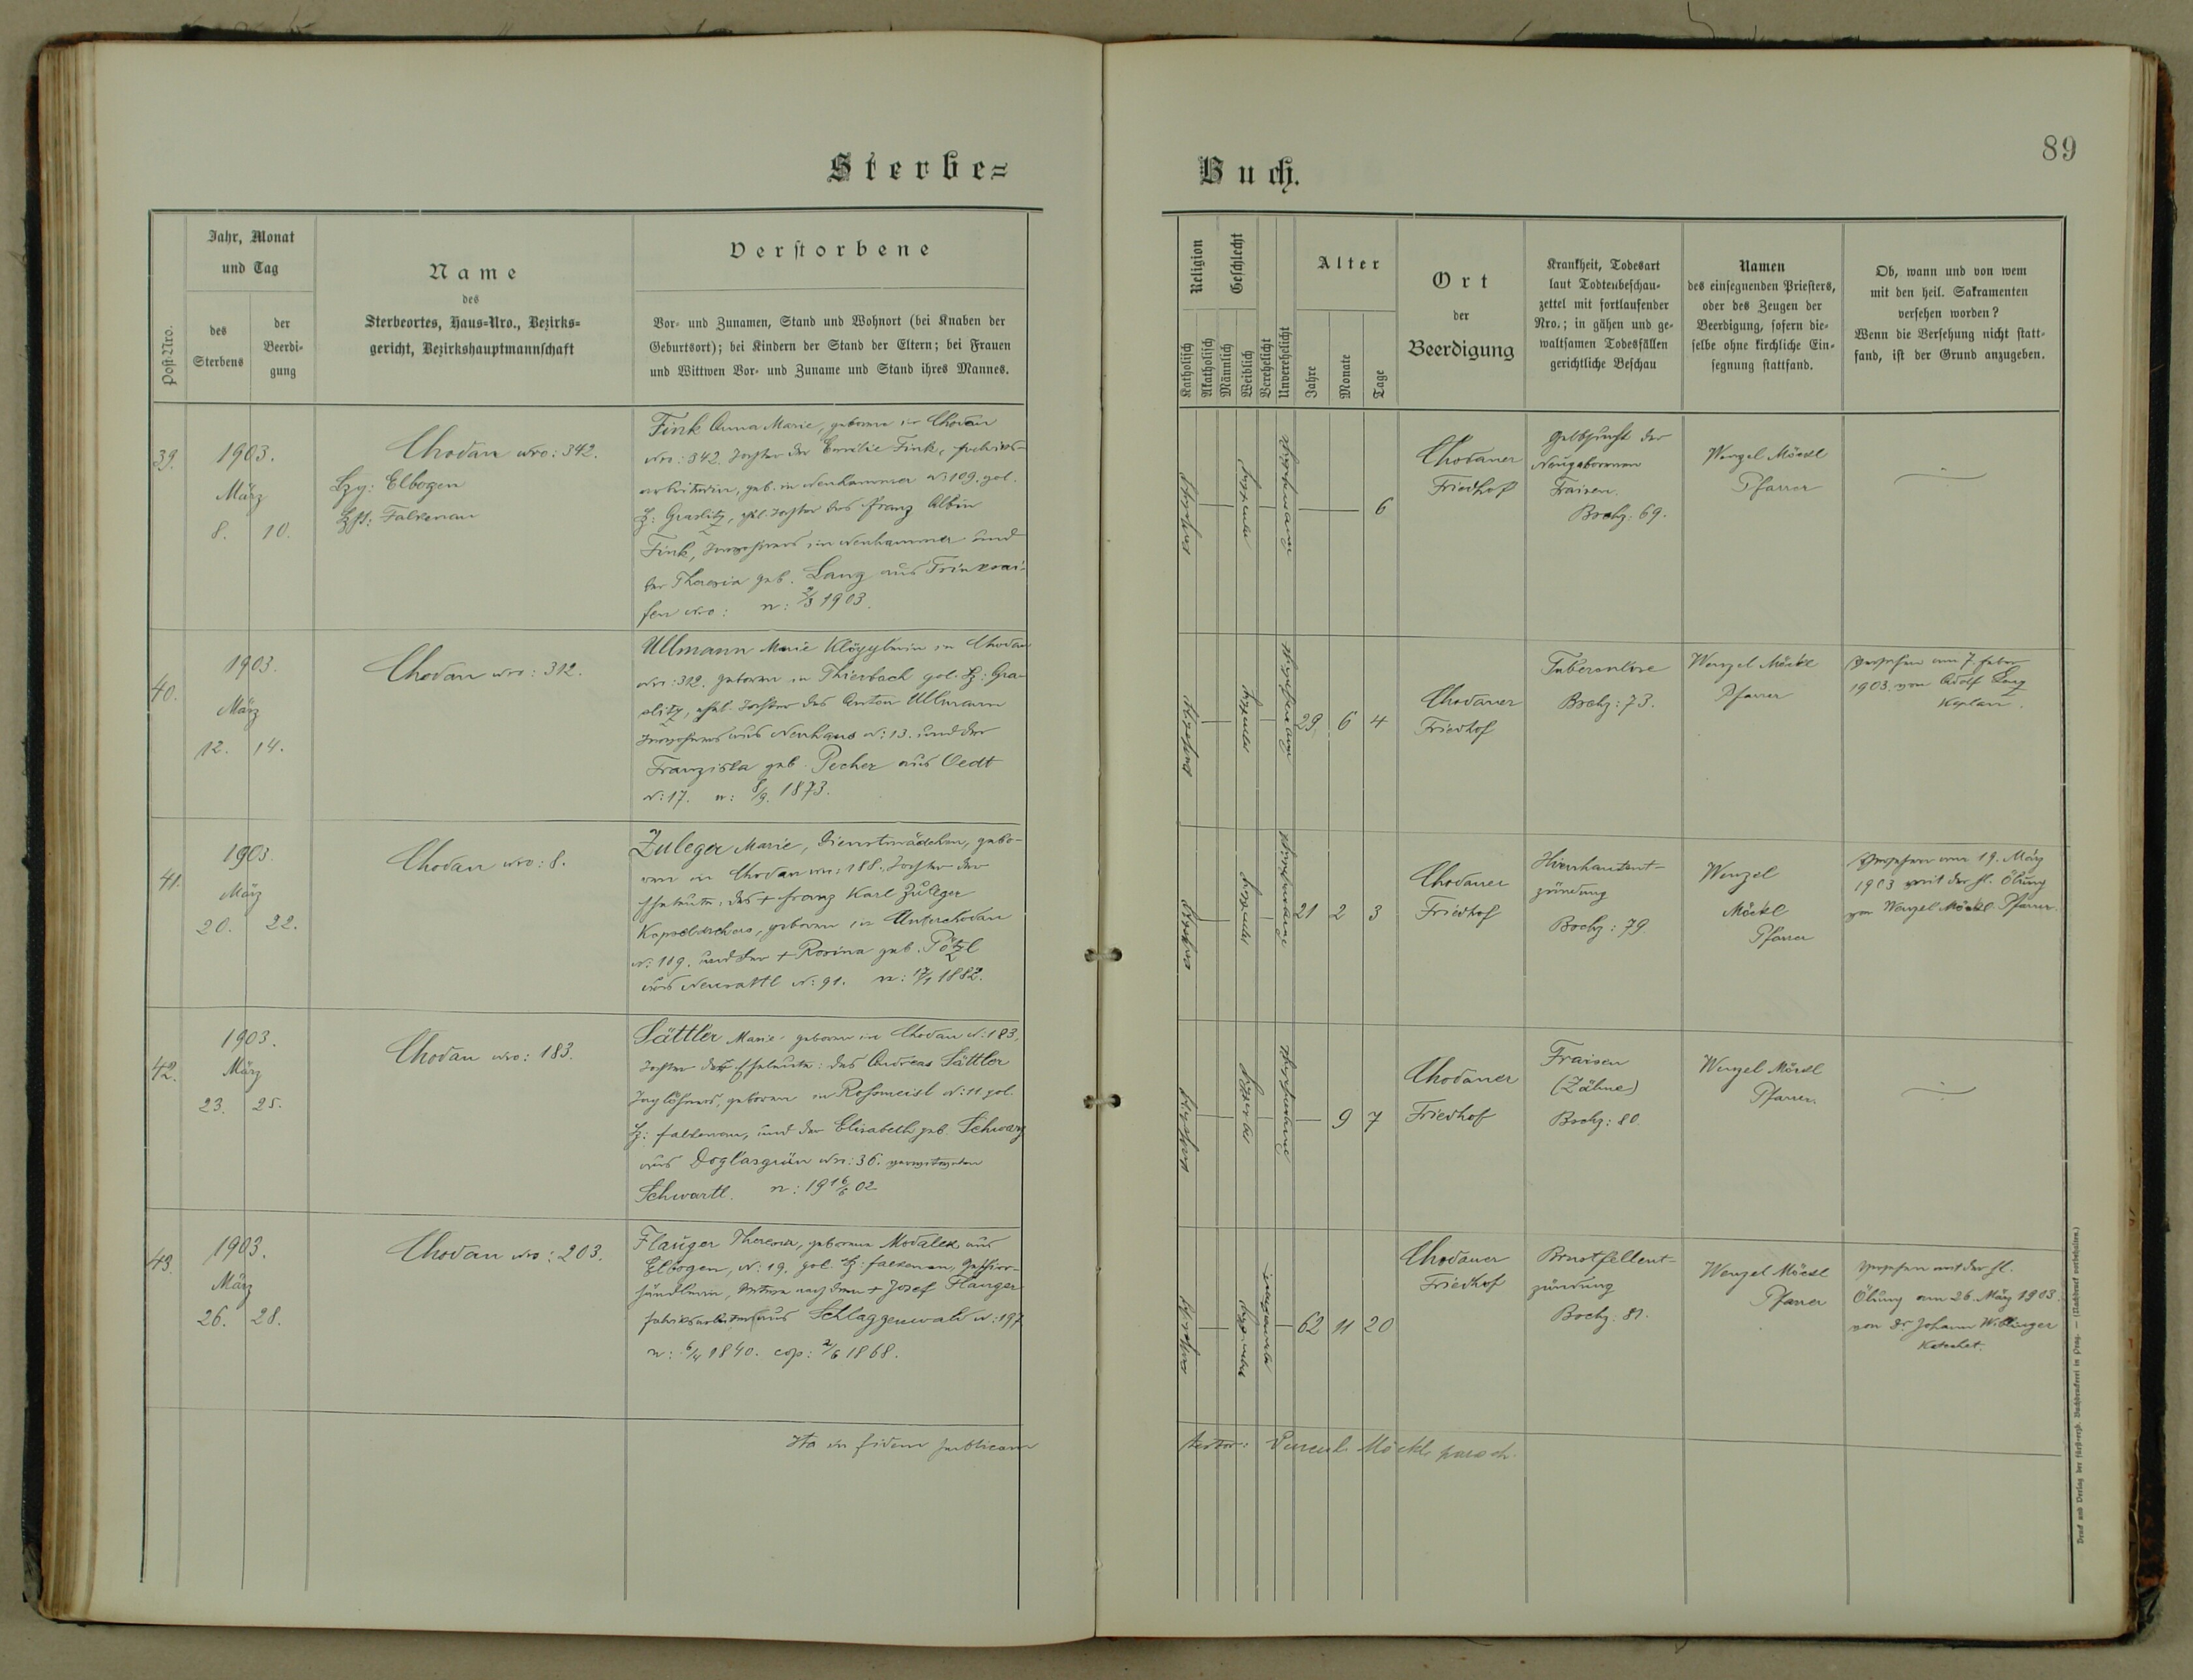 Sterbe=
Buch.
89
Post-Nro.
Jahr, Monat
und Tag
des
Sterbens
der
Beerdi-
gung
Name
des
Sterbeortes, Haus=Nro., Bezirks=
gericht, Bezirkshauptmannschaft
Verstorbene
Vor- und Zunamen, Stand und Wohnort (bei Knaben der
Geburtsort); bei Kindern der Stand der Eltern; bei Frauen
und Wittwen Vor- und Zuname und Stand ihres Mannes.
Religion
Katholisch
Akatholisch
Geschlecht
Männlich
Weiblich
Verehelicht
Unverehelicht
Alter
Jahre
Monate
Tage
Ort
der
Beerdigung
Krankheit, Todesart
laut Todtenbeschau-
zettel mit fortlaufender
Nro.; in gähen und ge-
waltsamen Todesfällen
gerichtliche Beschau
Namen
des einsegnenden Priesters,
oder des Zeugen der
Beerdigung, sofern die-
selbe ohne kirchliche Ein-
segnung stattfand.
Ob, wann und von wem
mit den heil. Sakramenten
versehen worden?
Wenn die Versehung nicht statt-
fand, ist der Grund anzugeben.
39.
1903.
März
8. 10.
Chodau Nro: 342.
Bzg: Elbogen
Bzht: Falkenau
Fink Anna Marie, geboren in Chodau
Nro: 342. Tochter der Emilie Fink, Fabriks-
arbeiterin, geb. in Neuhammer N: 109. gol.
Bz: Graslitz, ehl. Tochter des Franz Albin
Fink, in Neuhammer und
der Theresia geb. Lang aus Trinksai-
fen Nro: n: 2/3 1903.
katholisch
weiblich
unverehelicht
6
Chodauer
Friedhof
Gelbsucht der
Neugeborenen
Fraisen.
Bschz: 69.
Wenzel Möckl
Pfarrer
40.
1903.
März
12. 14.
Chodau Nro: 312.
Ullmann Marie Klöpplerin in Chodau
Nro: 312. geboren in Thierbach gol. Bz: Gra-
slitz, ehel. Tochter des Anton Ullmann
aus Neuhaus N: 13. und der
Franziska geb. Pecher aus Oedt
N: 17. n: 8/9. 1873.
katholisch
weiblich
unverehelicht
29 6 4
Chodauer
Friedhof
Tuberculose
Bschz: 73.
Wenzel Möckl
Pfarrer
Versehen am 7. Feber
1903. von Adolf Lang
Kaplan.
41.
1903.
März
20. 22.
Chodau Nro: 8.
Zuleger Marie, Dienstmädchen, gebo-
ren in Chodau Nro: 188. Tochter der
Eheleute, des + Franz Karl Zuleger
Kapseldrehers, geboren in Unterchodau
N: 119. und der + Rosina geb. Pötzl
aus Neusattl N: 91. n: 17/1 1882.
katholisch
weiblich
unverehelicht
21 2 3
Chodauer
Friedhof
Hirnhautent-
zündung
Bschz: 79
Wenzel
Möckl
Pfarrer
Versehen am 19. März
1903 mit der hl. Ölung
von Wenzel Möckl Pfarrer.
42.
1903.
März
23. 25.
Chodau Nro: 183.
Sättler Marie, geboren in Chodau N: 183,
Tochter der Eheleute: des Andreas Sättler
Taglöhners, geboren in Rohsmeisl N: 11 gol.
Bz: Falkenau, und der Elisabeth geb. Schwarz
aus Doglasgrün Nro: 36.
Schwartl. n: 19 16/6 02
katholisch
weiblich
unverehelicht
9 7
Chodauer
Friedhof
Fraisen
(Zähne)
Bschz: 80.
Wenzel Möckl
Pfarrer.
43.
1903.
März
26. 28.
Chodau Nro: 203.
Flauger Theresia, geborene Modalek aus
Elbogen, N: 19. gol. Bz: Falkenau, Geschirr-
händlerin, Witwe nach dem + Josef Flauger
Fabriksarbeiter aus Schlaggenwald N: 197
n: 6/4 1840. cop: 2/6 1868.
katholisch
weiblich
verwitwet
62 11 20
Chodauer
Friedhof
Brustfellent-
zündung
Bschz: 81.
Wenzel Möckl
Pfarrer
Versehen mit der hl.
Ölung am 26. März 1903.
von Dr. Johann Wiblinger
Katechet.
Ita in fidem publicam
testor: Vincenl Möckl paroch.
Druck und Verlag der fürst-erzb. Buchdruckerei in Prag. — (Nachdruck vorbehalten.)